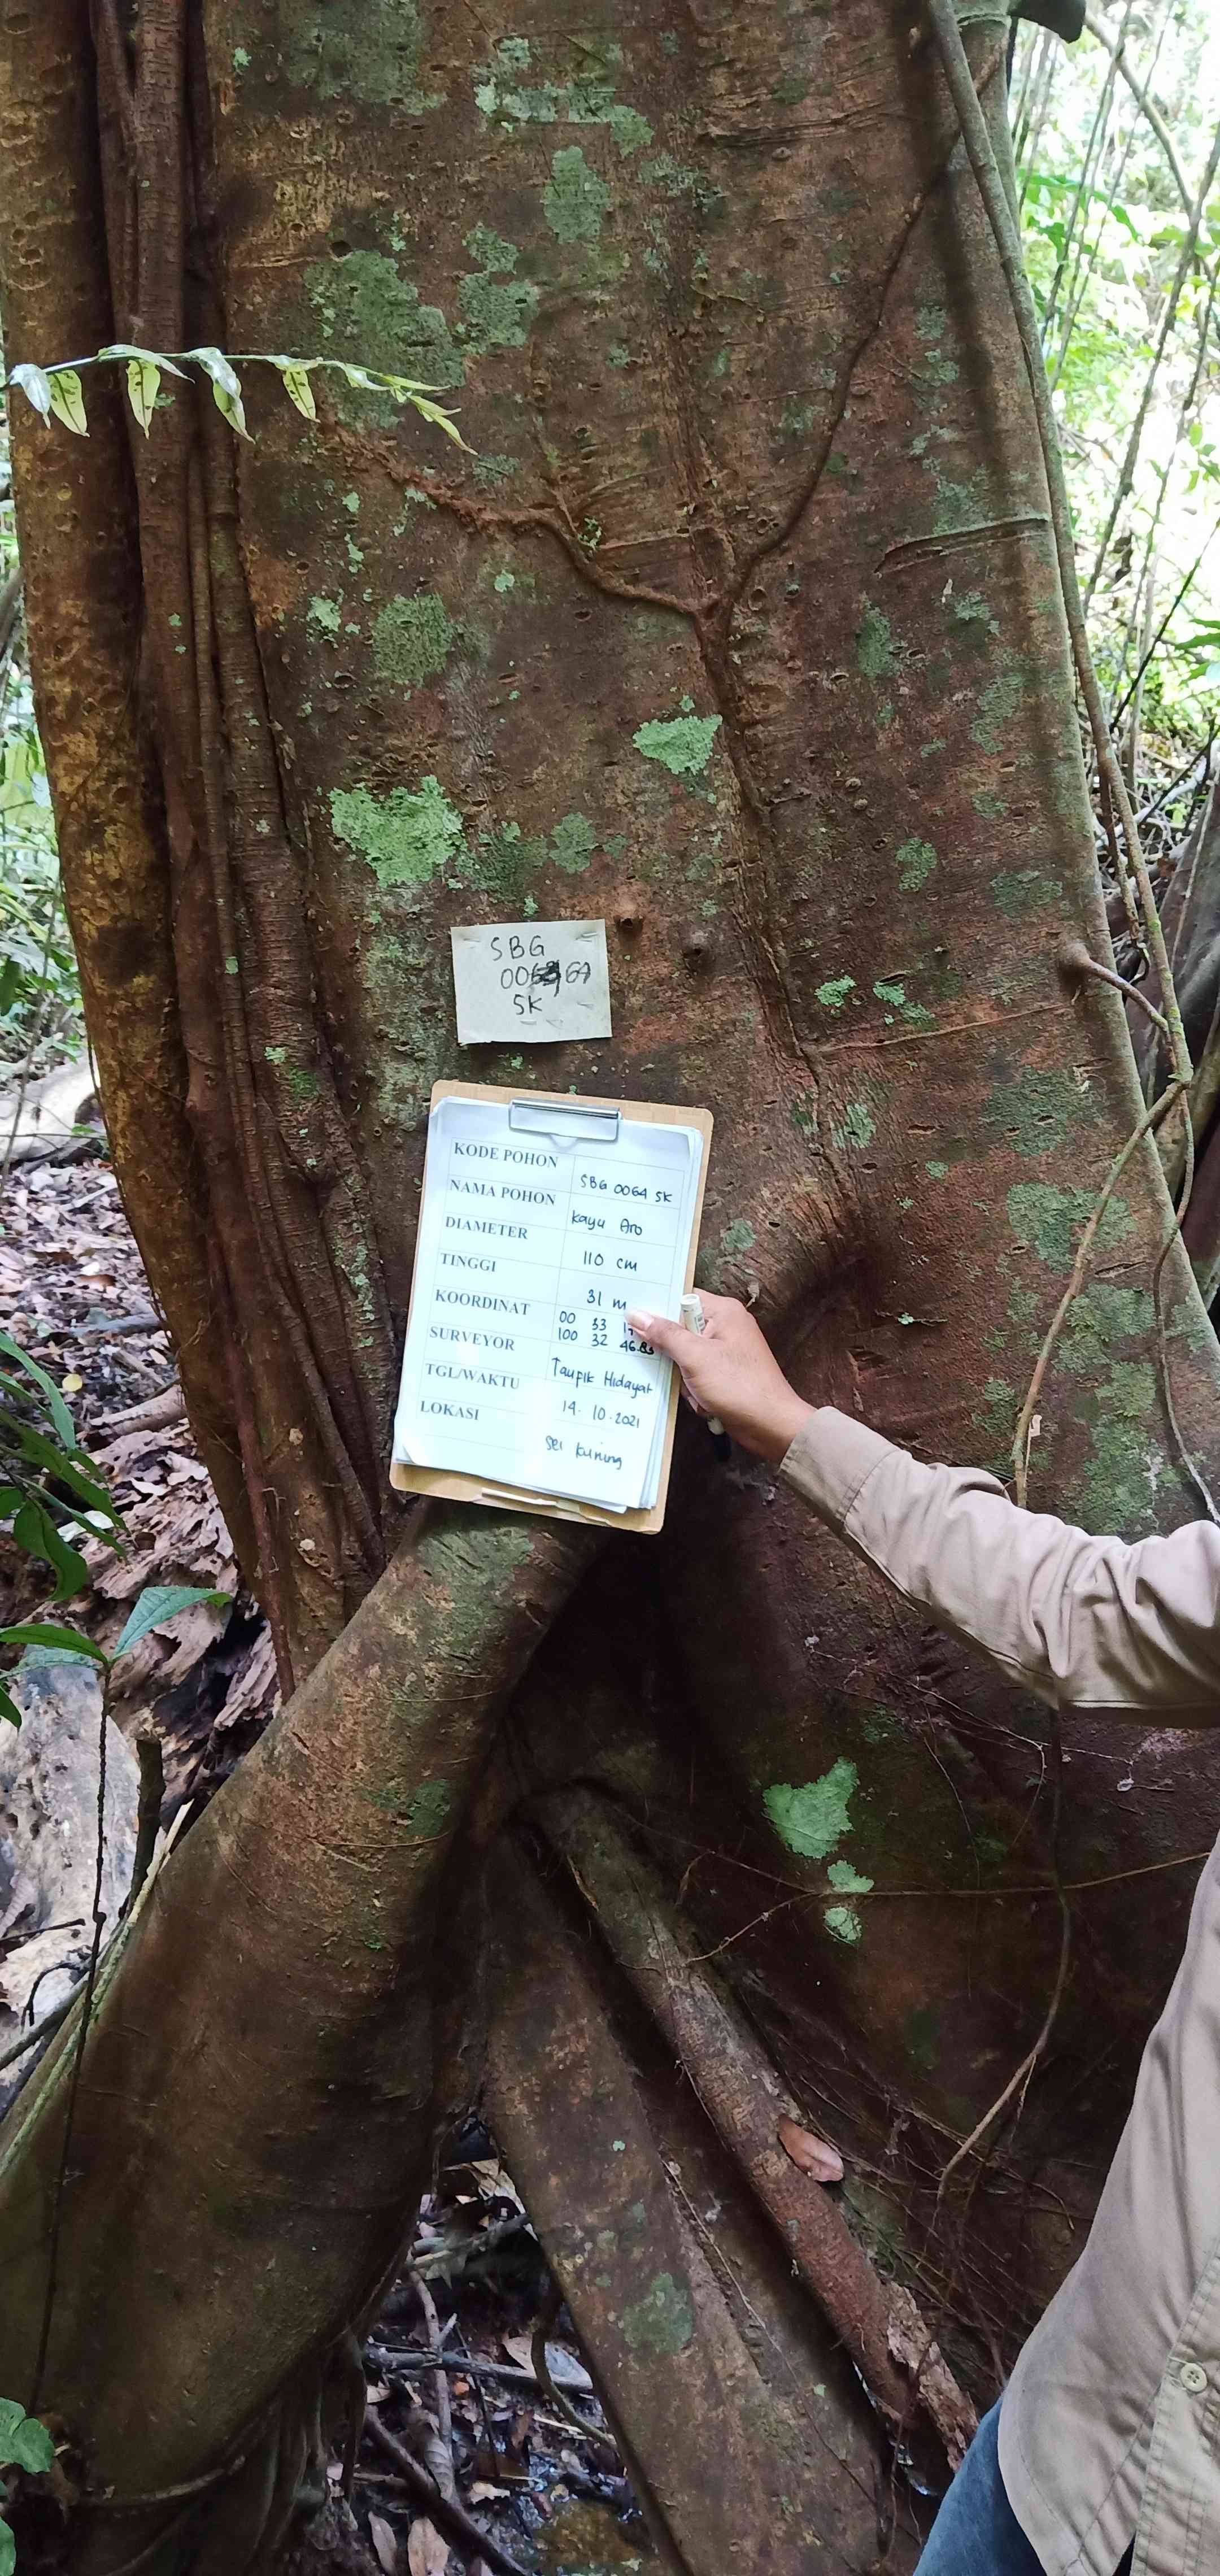 SBG
0064
SK
KODE POHON SBG 0064 SK
NAMA POHON Kayu Aro
DIAMETER 110 cm
TINGGI 31 m
KOORDINAT 00 33
100 32 46.83
SURVEYOR Taupik Hidayat
TGL/WAKTU 14.10.2021
LOKASI Sei Kuning